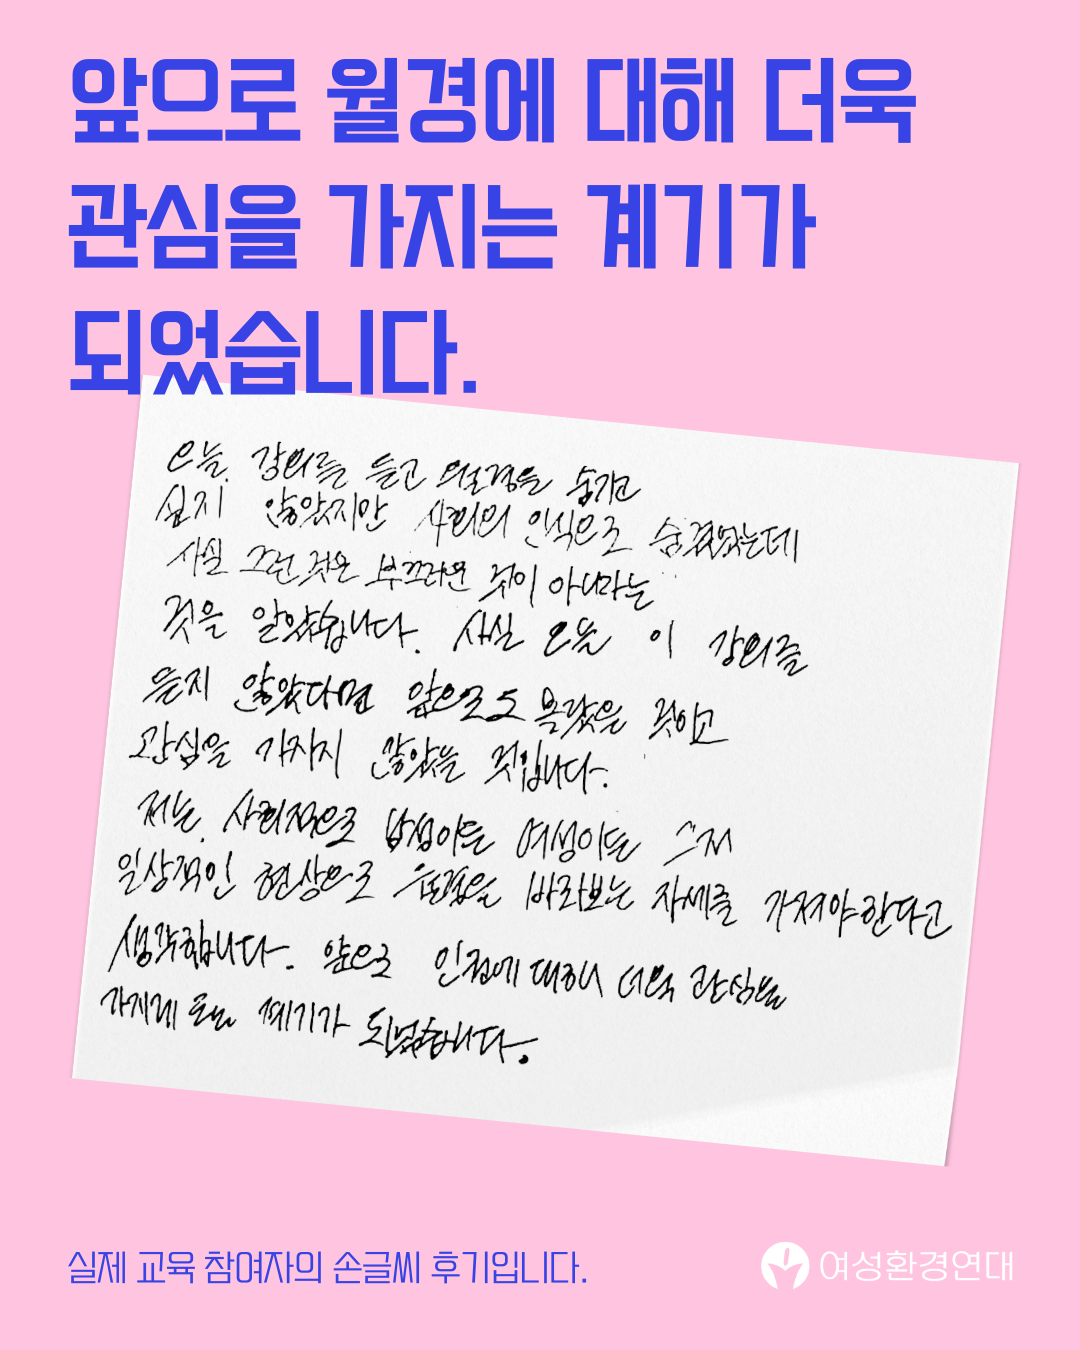 앞으로 월경에 대해 더욱
관심을 가지는 계기가
되었습니다.
오늘 강의를 듣고 월경을 숨기고
싶지 않았지만 사회의 인식으로 숨겼었는데
사실 그런 것은 부끄러운 것이 아니라는
것을 알았습니다. 사실 오늘 이 강의를
듣지 않았다면 앞으로도 몰랐을 것이고
관심을 가지지 않았을 것입니다.
저는 사회적으로 남성이든 여성이든 그저
일상적인 현상으로 월경을 바라보는 자세를 가져야한다고
생각합니다. 앞으로 대해 더욱 관심을
가지게 되는 계기가 되었습니다.
실제 교육 참여자의 손글씨 후기입니다.
여성환경연대